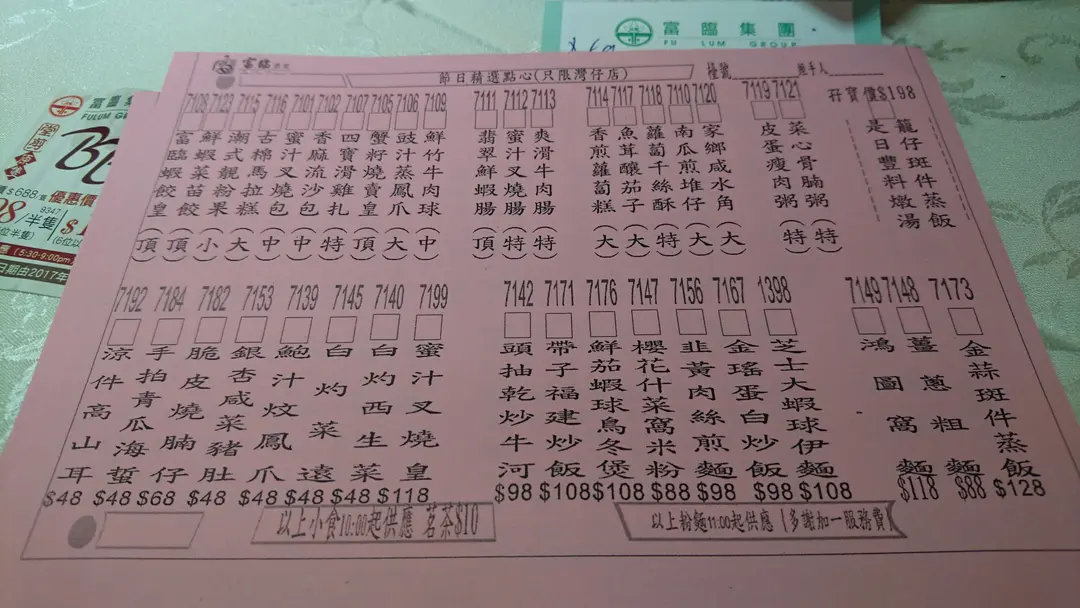 富臨集團
FU LUM GROUP
富臨
節日精選點心(只限灣仔店)
檯號
經手人
7108 富臨蝦餃皇(頂)
7123 鮮蝦菜苗餃(頂)
7115 潮式靚粉果(小)
7116 古棉馬拉糕(大)
7101 蜜汁叉燒包(中)
7102 香麻流沙包(中)
7107 四寶滑雞扎(特)
7105 蟹籽燒賣皇(頂)
7106 豉汁蒸鳳爪(大)
7109 鮮竹牛肉球(中)
7111 翡翠鮮蝦腸(頂)
7112 蜜汁叉燒腸(特)
7113 爽滑牛肉腸(特)
7114 香煎蘿蔔糕(大)
7117 魚茸釀茄子(大)
7118 蘿蔔千絲酥(特)
7110 南瓜煎堆仔(大)
7120 家鄉咸水角(大)
7119 皮蛋瘦肉粥(特)
7121 菜心骨腩粥(特)
孖寶價$198
是日豐料燉湯
籠仔斑件蒸飯
7192 涼件高山耳 $48
7184 手拍青瓜海蜇 $48
7182 脆皮燒腩仔 $68
7153 銀杏咸菜豬肚 $48
7139 鮑汁炆鳳爪 $48
7145 白灼菜遠 $48
7140 白灼西生菜 $48
7199 蜜汁叉燒皇 $118
7142 頭抽乾炒牛河 $98
7171 帶子福建炒飯 $108
7176 鮮茄蝦球鳥冬煲 $108
7147 櫻花什菜窩米粉 $88
7156 韭黃肉絲煎麵 $98
7167 金瑤蛋白炒飯 $98
1398 芝士大蝦球伊麵 $108
7149 鴻圖窩麵 $118
7148 薑蔥粗麵 $88
7173 金蒜斑件蒸飯 $128
以上小食10:00起供應 茗茶$10
以上粉麵11:00起供應(多謝加一服務費)
富臨集
FULUM G
$668
優惠價
9347
/半隻
(5:30-9:00pm
日期由2017年